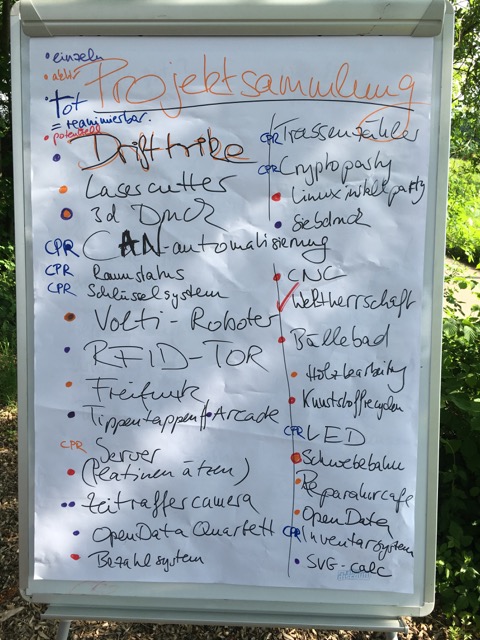 einzeln
aktiv
Projektsammlung
tot
= reanimierbar.
potentiell
Drifttrike
Lasercutter
3d Druck
CPR CAN-automatisierung
CPR Raumstatus
CPR Schlüsselsystem
Volti-Roboter
RFID-TOR
Freifunk
Tippentappen Arcade
CPR Server
(Platinen ätzen)
Zeitraffercamera
OpenData Quartett
Bezahlsystem
CPR Trassenzähler
CPR Cryptoparty
Linuxinstallparty
Siebdruck
CNC
Weltherrschaft
Bällebad
Holzbearbeitung
Kunststoffrecyclen
CPR LED
Schwebebahn
Reparaturcafe
OpenData
CPR Inventarsystem
SVG-calc